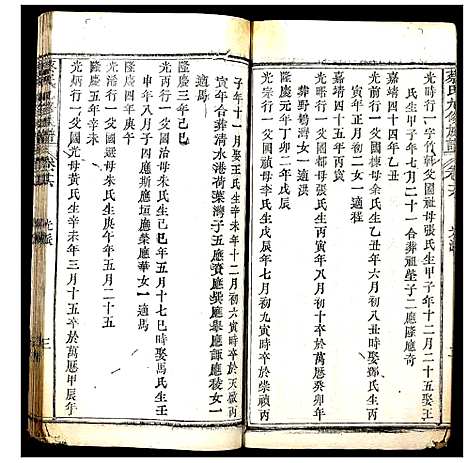 蔡氏九修族譜
光時行一字竹軒父國祖母張氏生甲子年十二月二十五娶王
氏生甲子年七月二十一合葬祖塋子二應隆應奇
嘉靖四十四年乙丑
光前行一父國棟母余氏生乙丑六月初八丑時娶鄧氏生丙
寅年正月初二女一適程
嘉靖四十五年丙寅
光宗行一父國都母張氏生丙寅年八月初十丑時卒萬曆癸卯年
葬野鴨灣女一適胡
隆慶元年丁卯二年戊辰
光裕行一父國禎母李氏生戊辰年七月初九寅時卒於崇禎丙
子年十一月娶王氏生辛未年十二月初六寅時卒於天啟丙
寅年合葬清水港荷葉灣子五應賓應選應舉應諏應莪女一
適馬
隆慶三年己巳
光啟行一父國治母朱氏生己巳年五月十七巳時娶馬氏生壬
申年八月子四應斯應垣應榮應華女一適馬
隆慶四年庚午
光行一父國選母朱氏生庚午年五月二十五
隆慶五年辛未
光炳行一父國母黃氏生辛未年三月十五卒於萬曆甲辰年
光派
三